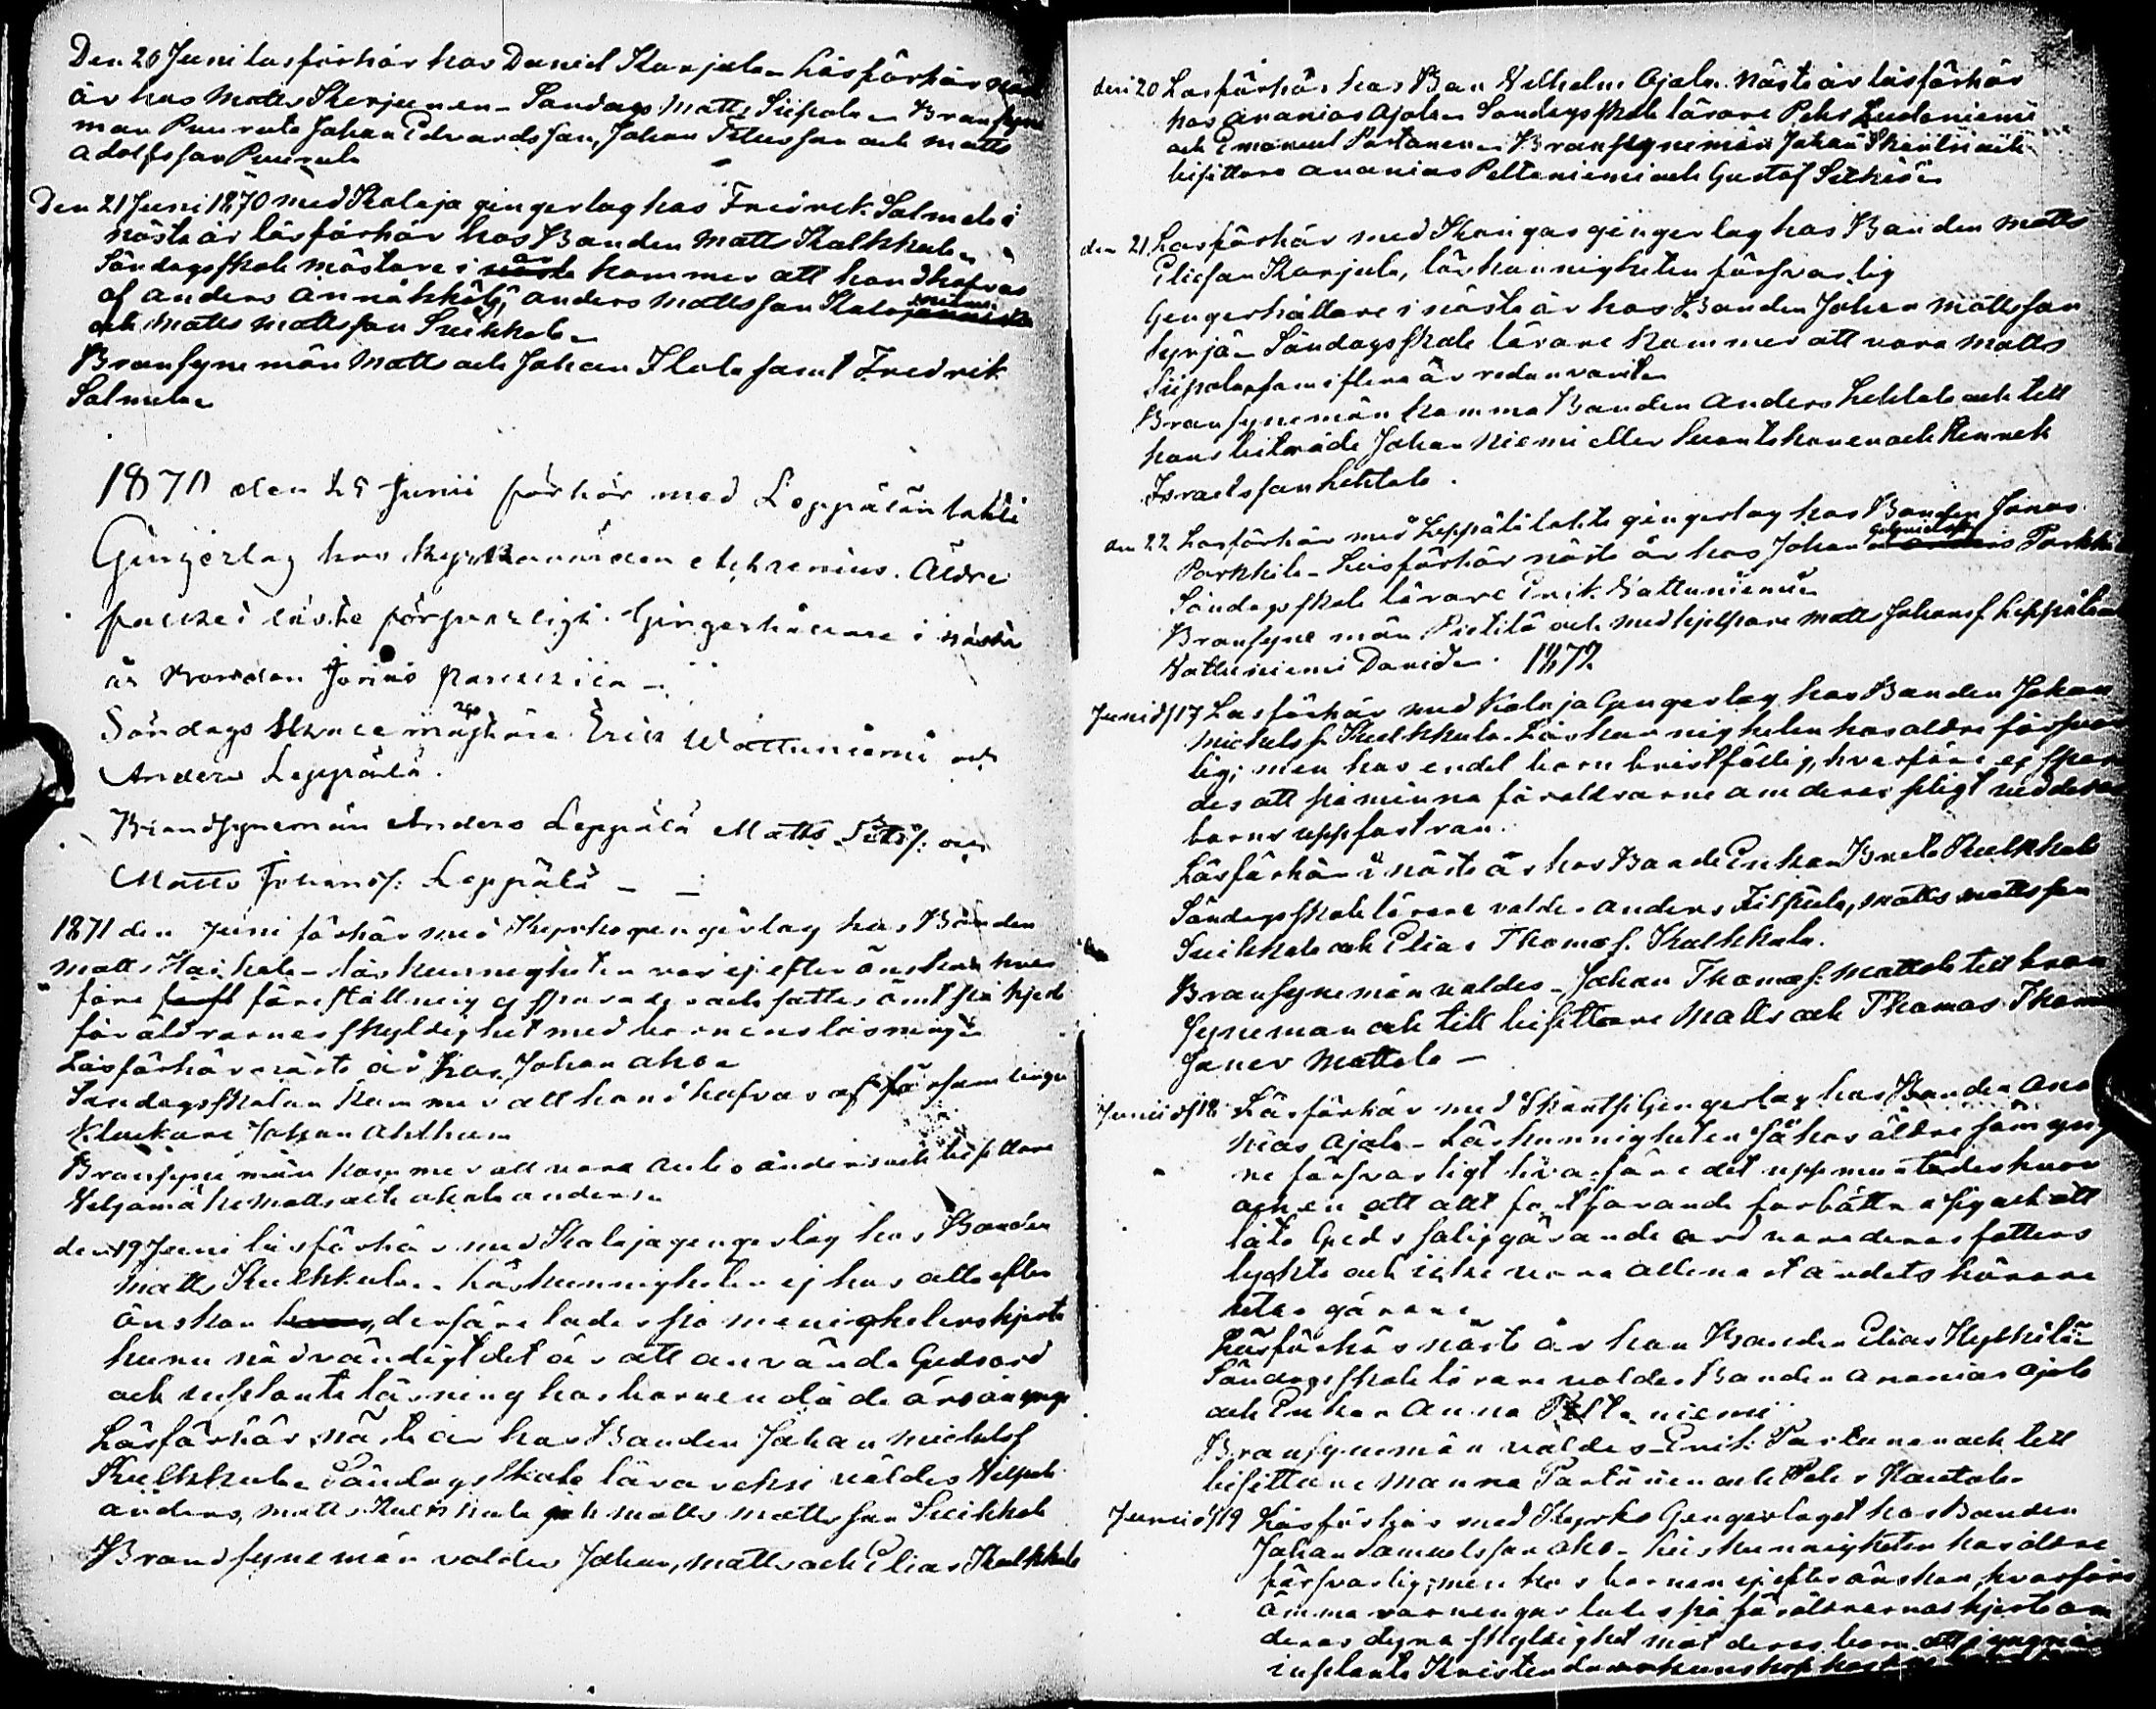 Den 20 Juni läsförhör hos Daniel Karjala Läsförhör näst
år hos Matts Karjunen Söndags Matts Siipola Bransyne
man Puurula Johan Edvardsson, Johan Titusson och Matts
Adolfsson Puurula
Den 21 Juni 1870 med Kalaja gingerlag hos Fredrik Salmela i
näste år läsförhör hos Banden Matts Kulkkula
Söndagsskole mästare i år kommer att handhafvas
af Anders Annäkkälä, Anders Mattsson Kalajaniemi
och Matts Mattsson Suikkala
Bransynemän Matts och Johan Ilola samt Fredrik
Salmela
1870 den 25 Junii förhör med Leppälänlahti
Gingerlag hos Kyrkovärden Äldre
folket läste försvarligt. Gingerhållare i nästa
år Bonden Jonas Parkkila
Söndags Skole mästare Erik Wattuniemi och
Anders Leppälä.
Brandsynemän Anders Leppälä Matts och
Matts Johanss: Leppälä
1871 den Juni förhör med Kyrko gengerlag hos Bonden
Matts Haikala läskunnigheten var ej efter önskan hvar
före föreställning ej sparades och sattes ömt på hjerta
föräldrarnes skyldighet med barnens läsning
Läsförhör näste år hos Johan Aho
Söndagsskolan kommer att handhafvas af församlings
Klockare Johan Ahlholm
Bransyne män kommer att vara Anders och bisittare
Veljamäki Matts och Ahola Anders
den 19 Juni läsförhör med Kalaja gengerlag hos Bonden
Matts Kulkkula. Läskunnigheten ej hos alla efter
önskan derföre lades på menighetens hjerta
huru nödvändigt det är att använda Guds ord
och inplanta läsning hos barnen då de äro unga
Läsförhör näste år hos Banden Johan Michelsf
Kulkkula Söndags Skole lärare valdes Vilpula
Anders, Matts Kulkkula och Matts Mattsson Suikkala
Brandsynemän valdes Johan, Matts och Elias Kulkkula
den 20 Läsförhör hos Ban Vilhelm Ojala Näste år läsförhör
hos Ananias Ojala Söndagsskole lärare Pehr Ludoniemi
och Emanuel Partanen Bransynemän Johan
bisittare Ananias Peltoniemi och Gustaf
den 21 Läsförhör med Kangas gingerlag hos Banden Matts
Eliasson Karjula, läskunnigheten försvarlig
Gengerhållare i näste år hos Banden Johan Mattsson
Syrjä Söndagsskole lärare kommer att vara Matts
Siipola som i flera år redan varit
Bransynemän komma Banden Anders Lehtola och till
hans biträde Johan Niemi eller och Henrik
Israelsson Lehtola.
den 22 Läsförhör med Leppälälahti gingerlag hos Banden Jonas
Parkkila Läsförhör näste år hos Johan Parkkila
Söndagsskole lärare Erik Vattuniemi
Bransyne män Pietilä och medhjelpare Matts Johansf. Leppälä
Vattuniemi Daniel. 1872
Juni d 17 Läsförhör med Kalaja Gengerlag hos Banden Johan
Michelsf. Kulkkula. Läskunnigheten hos äldre försvar
lig; men hos endel barn bristfällig, hvarföre ej spar
des att påminna föräldrarne om deras pligt vid deras
barns uppfostran.
Läsförhör i näste år hos Bande Enkan Kulkkula
Söndagsskole lärare valdes Anders Filpula, Matts Mattsson
Suikkala och Elias Thomasf. Kulkkula.
Bransynemän valdes Johan Thomasf: Mattola till bran
syneman och till bisittare Matts och Thomas Thoma
söner Mattola
Junii d 18 Läsförhör med Gengerlag hos Banden Ana
nias Ojala Läskunnigheten så hos äldre som yng
re försvarligt hvarföre det uppmuntrades hvar
och en att allt fortfarande förbättra sig och att
låta Guds saliggörande ord vara deras fötters
lykta och icke vara allenast ordets hörare
utan görare
Läsförhör näste år hos Banden Elias
Söndagsskole lärare valdes Banden Ananias Ojala
och Enkan Anna Peltoniemi
Bransynemän valdes Erik Partanen och till
bisittare Manne Partanen och Pehr Kantola
Junii d 19 Läsförhör med Kyrko Gengerlaget hos Banden
Johan Samuelsson Aho. Läskunnigheten hos äldre
försvarlig; men hos barnen ej efter önskan, hvarföre
ömma varningar lades på föräldrarnas hjerta om
deras dyra skyldighet mot deras barn att
inplanta Kristendomskunskap hos